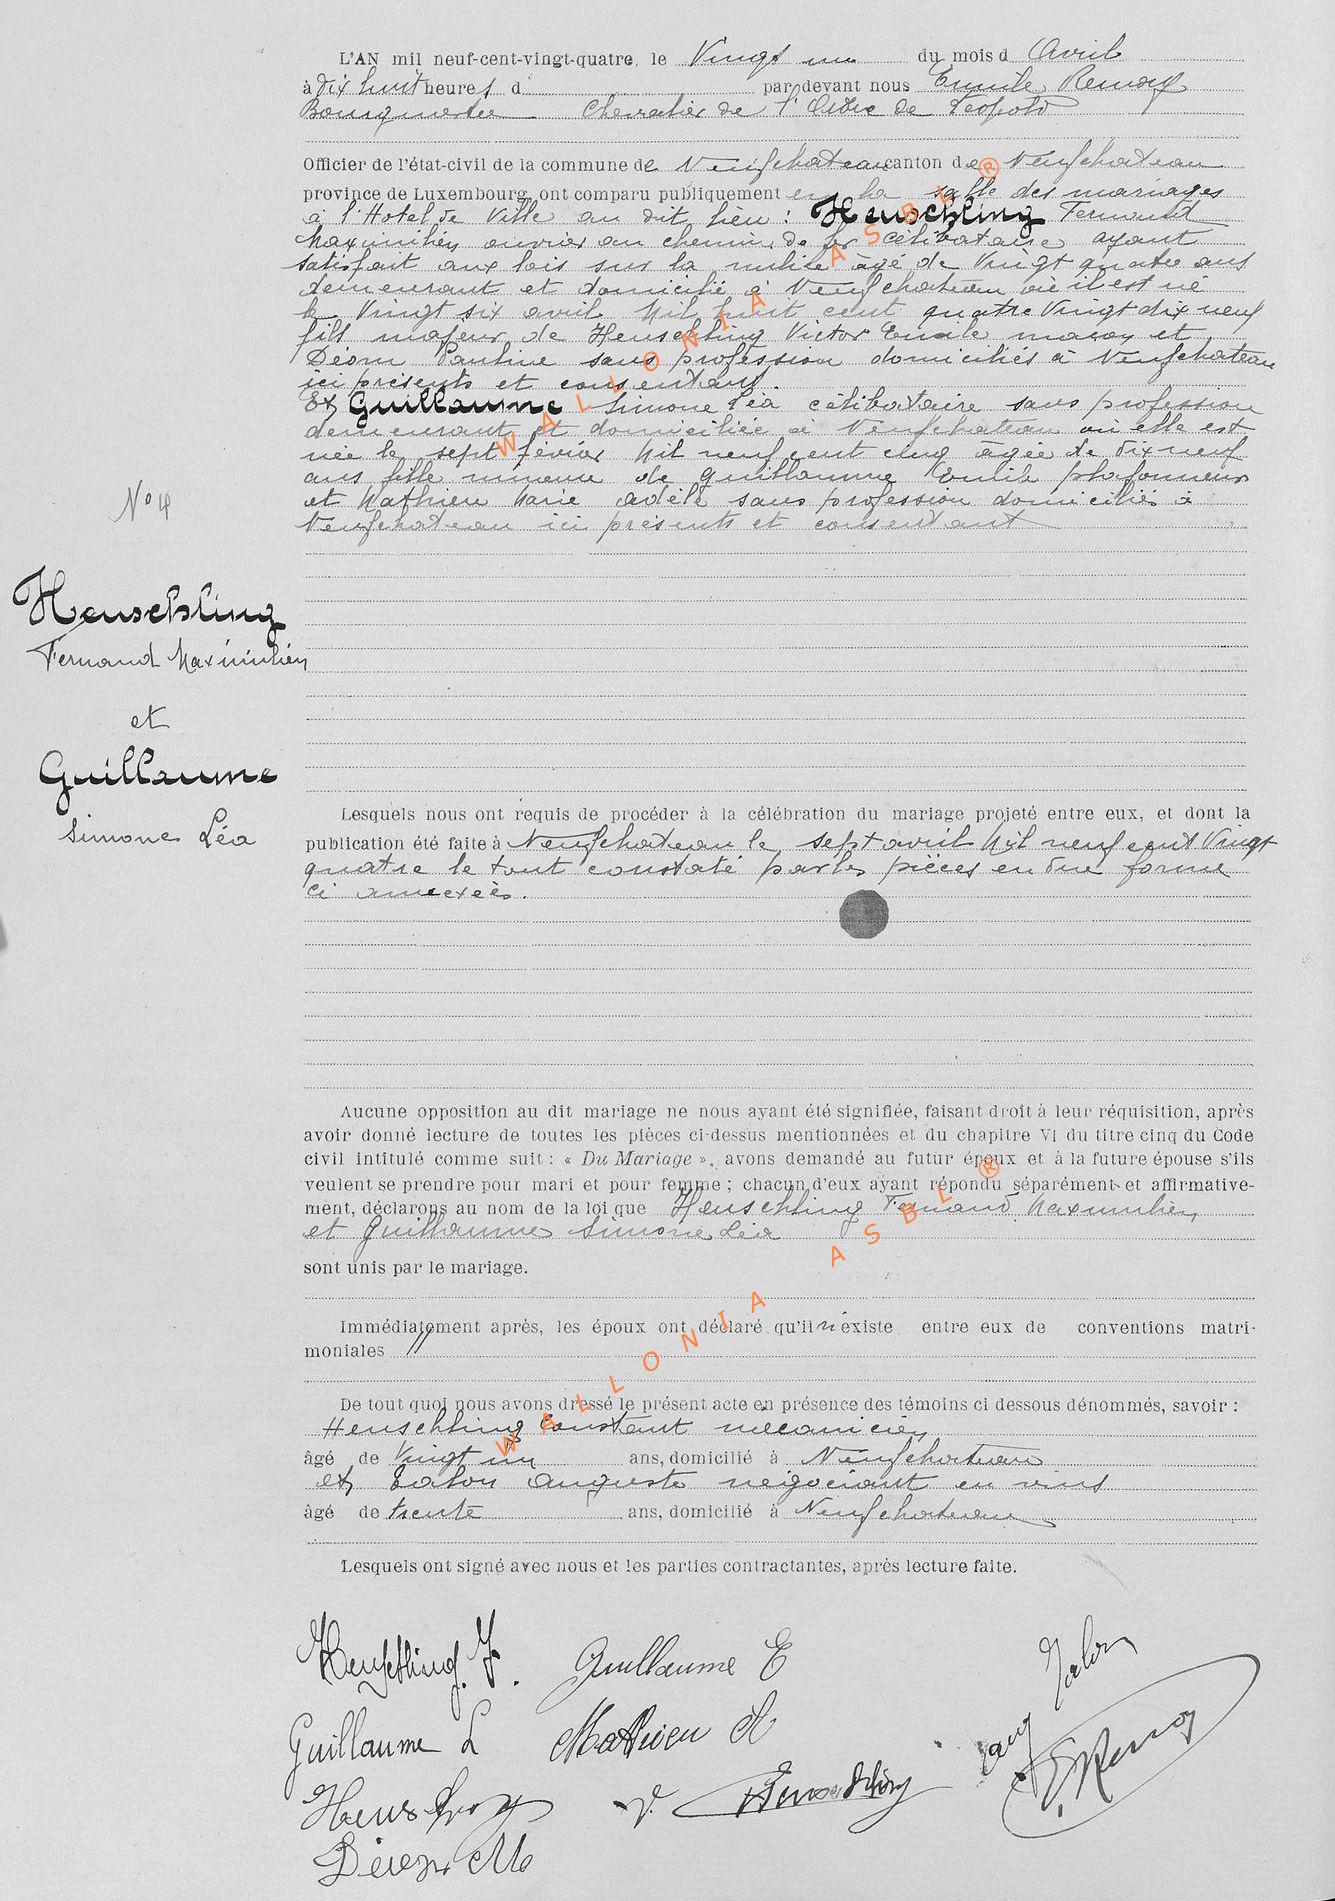 L'AN mil neuf-cent-vingt-quatre, le Vingt un du mois d Avril
à Dix huit heures d par devant nous Emile Remoy
Bourgmestre Chevalier de l'Ordre de Léopold
Officier de l'état-civil de la commune de Neufchateau canton de Neufchateau
province de Luxembourg, ont comparu publiquement en la salle des mariages
à l'Hotel de Ville au dit lieu : Heuschling Fernand
Maximilien ouvrier au chemin de fer célibataire ayant
satisfait aux lois sur la milice âgé de Vingt quatre ans
demeurant et domicilié à Neufchateau où il est né
le Vingt six avril Mil huit cent quatre Vingt dix neuf
fils majeur de Heuschling Victor Emile maçon et
Déom Pauline sans profession domiciliés à Neufchateau
ici présents et consentant.
Et Guillaume Simone Léa célibataire sans profession
demeurant et domiciliée à Neufchateau où elle est
née le sept février Mil neuf cent cinq âgée de Dix neuf
ans fille mineure de Guillaume Emile plafonneur
et Mathieu Marie Adèle sans profession domiciliés à
Neufchateau ici présents et consentant
No 4
Heuschling
Fernand Maximilien
et
Guillaume
Simone Léa
Lesquels nous ont requis de procéder à la célébration du mariage projeté entre eux, et dont la
publication été faite à Neufchateau le sept avril Mil neuf cent Vingt
quatre le tout constaté par les pièces en due forme
ci annexées.
Aucune opposition au dit mariage ne nous ayant été signifiée, faisant droit à leur réquisition, après
avoir donné lecture de toutes les pièces ci-dessus mentionnées et du chapitre VI du titre cinq du Code
civil intitulé comme suit : « Du Mariage », avons demandé au futur époux et à la future épouse s'ils
veulent se prendre pour mari et pour femme ; chacun d'eux ayant répondu séparément et affirmative-
ment, déclarons au nom de la loi que Heuschling Fernand Maximilien
et Guillaume Simone Léa
sont unis par le mariage.
Immédiatement après, les époux ont déclaré qu'il n'existe entre eux de conventions matri-
moniales
De tout quoi nous avons dressé le présent acte en présence des témoins ci dessous dénommés, savoir :
Heuschling Constant mécanicien
âgé de Vingt un ans, domicilié à Neufchateau
et Talon Auguste négociant en vins
âgé de trente ans, domicilié à Neufchateau
Lesquels ont signé avec nous et les parties contractantes, après lecture faite.
Heuschling. F. Guillaume E Talon
Guillaume L Mathieu A aug E. Remoy
V. Heuschling
WALLONIA ASBL ®
WALLONIA ASBL ®